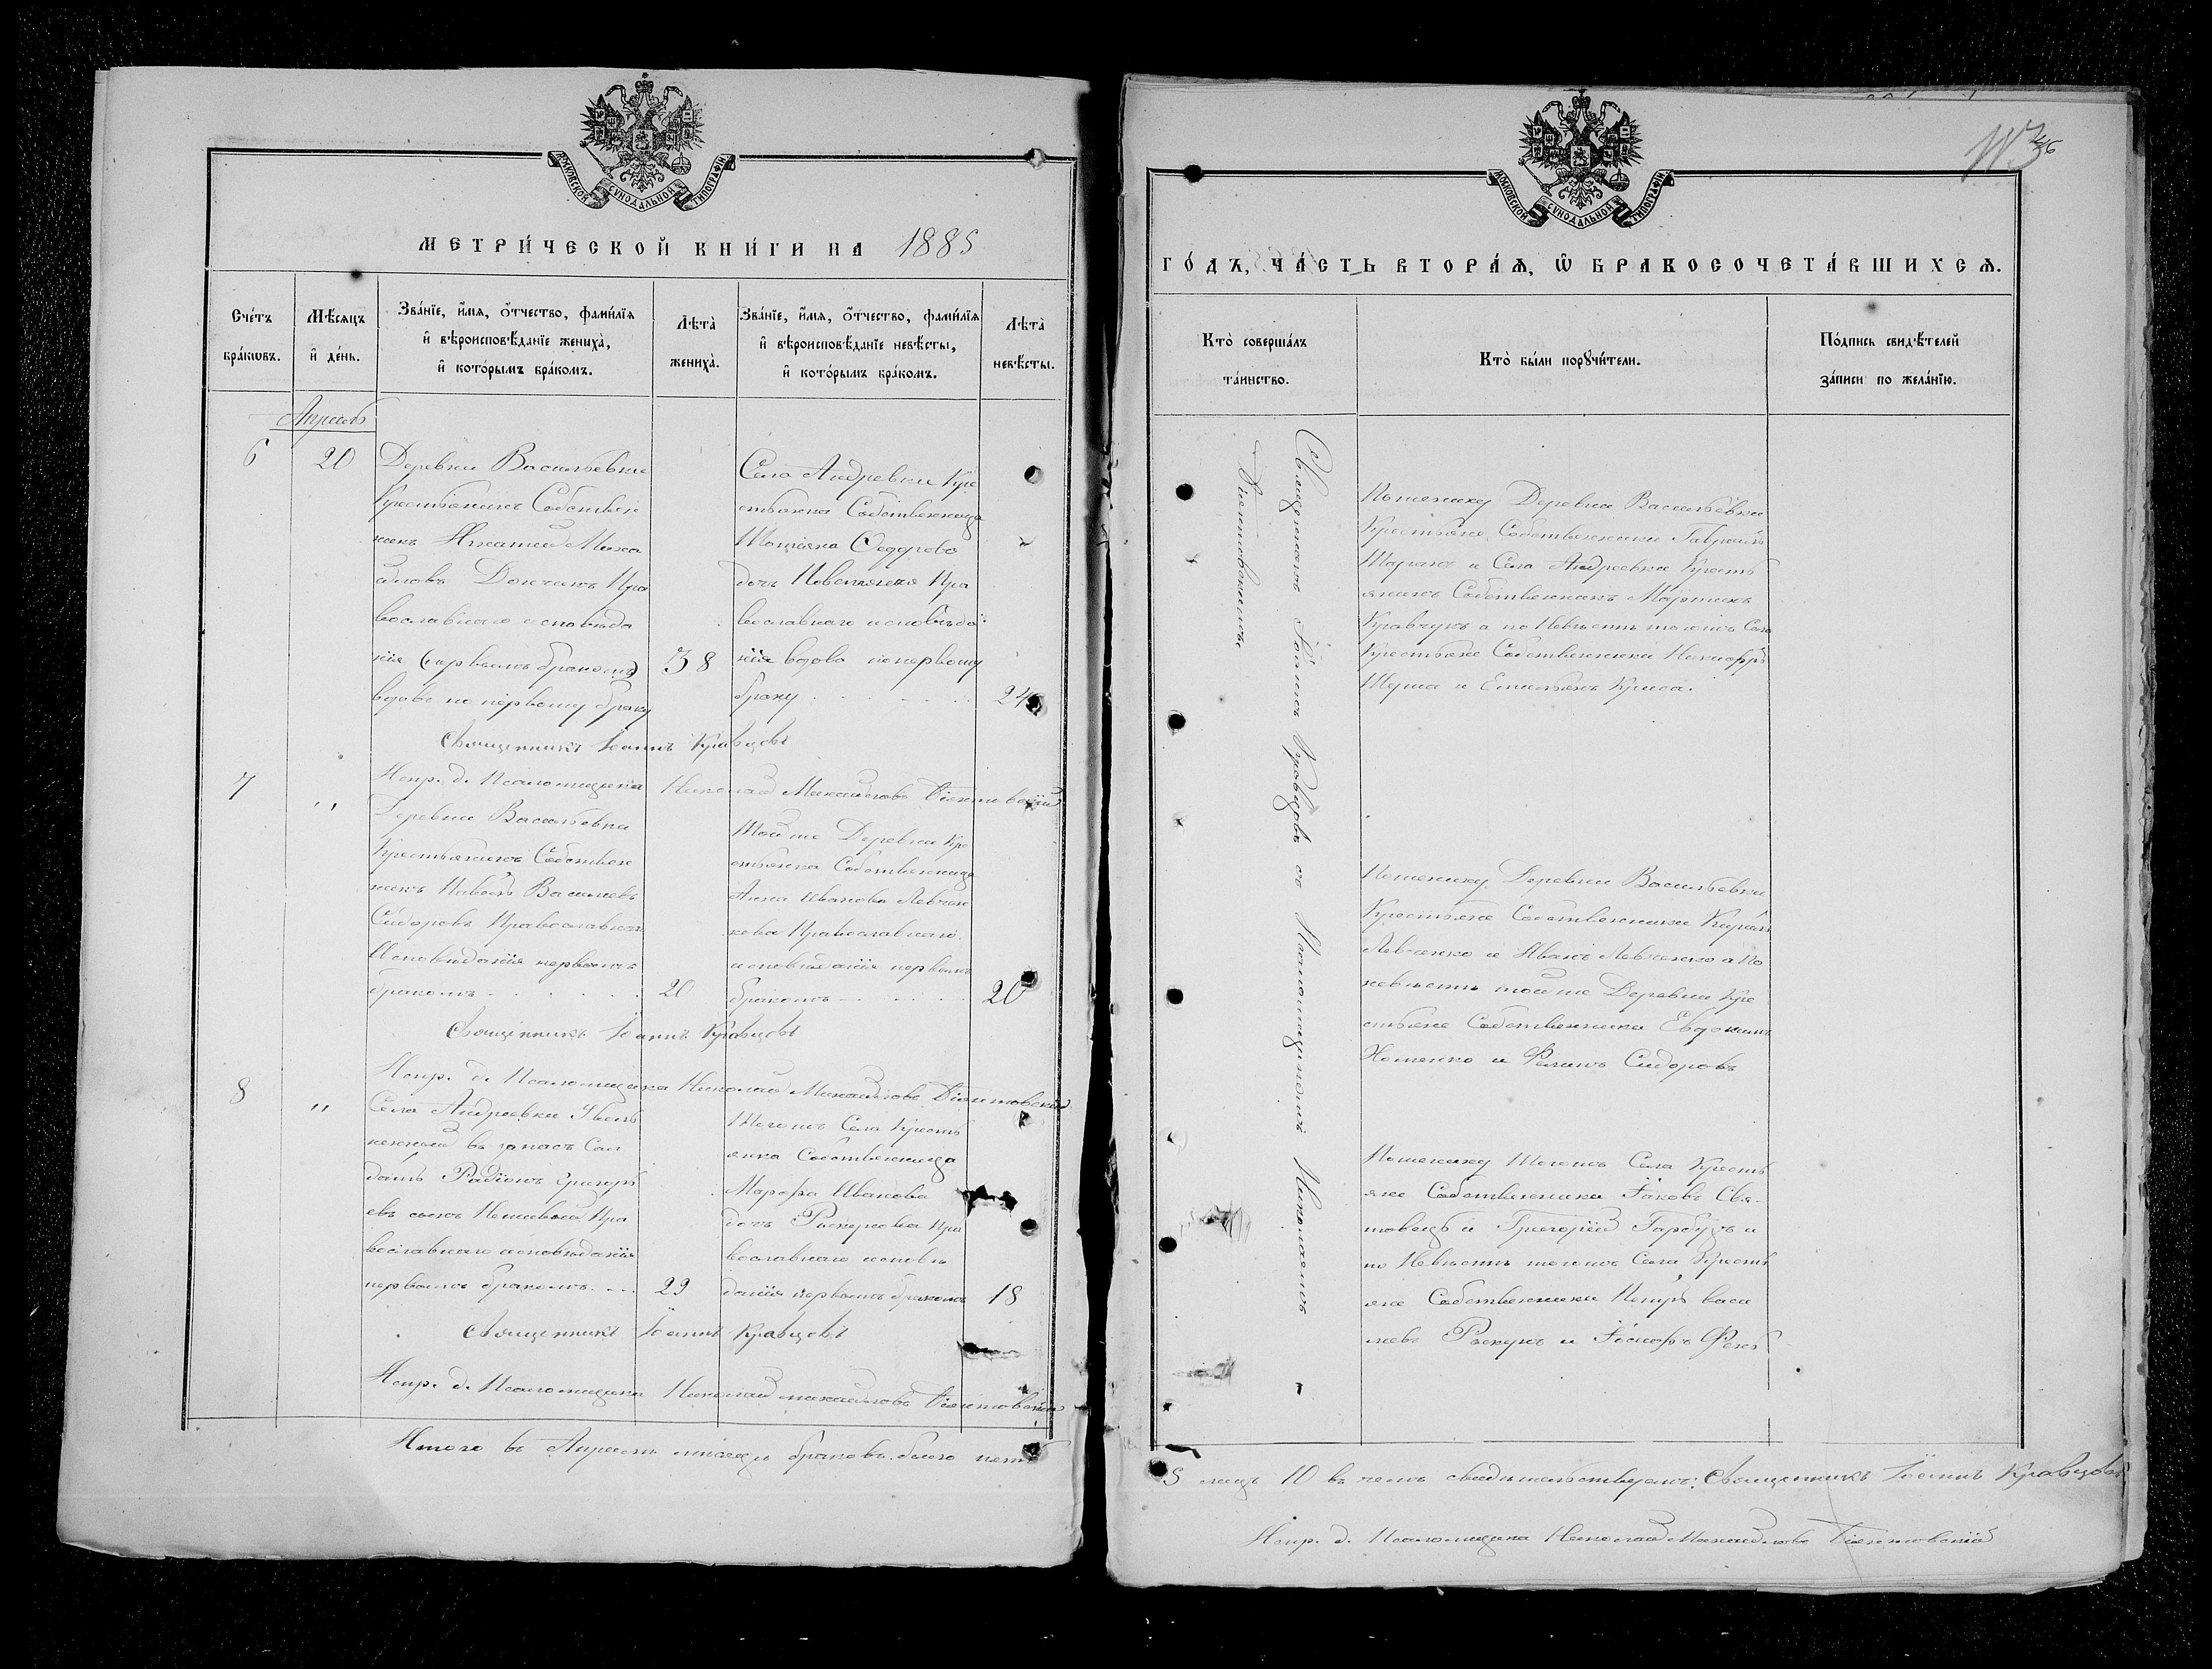 МОСКОВСКОЙ СУНОДАЛЬНОЙ ТИПОГРАФІИ
МЕТРИ́ЧЕСКОЙ КНИ́ГИ НА 1885
Сче́тъ бра́кωвъ.
Мѣ́сяцъ и҆ де́нь.
Зва́нїе, и҆́мя, ѻ҆́тчество, фами́лїя
и҆ вѣроисповѣ́данїе жениха̀,
и҆ кото́рымъ бра́комъ.
Лѣта̀ жениха̀.
Зва́нїе, и҆́мя, ѻ҆́тчество, фами́лїя
и҆ вѣроисповѣ́данїе невѣ́сты,
и҆ кото́рымъ бра́комъ.
Лѣта̀ невѣ́сты.
Апрель
6
20
Деревни Васильевки
Крестьянинъ Собствен
никъ Михаи
ловъ Пра
вославнаго исповѣда
нія первымъ бракомъ
вдове по первому браку
38
Села Андревки Кре
стьянка Собственница
Федорова
дочь Пра
вославнаго исповѣда
нія вдова по первому
браку
24
Священникъ Іоаннъ Кравцовъ
Испр. д. Псаломщика Николай Михайловъ
7
"
Деревни Васильевки
Крестьянинъ Собствен
никъ Павелъ Васильевъ
Сидоровъ Православнаго
Исповѣданія первымъ
бракомъ
20
Тойже Деревни Кре
стьянка Собственница
Анна Иванова Левчен
кова Православнаго
исповѣданія первымъ
бракомъ
20
Священникъ Іоаннъ Кравцовъ
Испр. д. Псаломщика Николай Михайловъ
8
"
Села Андревки Уволь
ненный въ запасъ Сол
датъ Радіонъ Григорь
евъ сынъ Пра
вославнаго исповѣданія
первымъ бракомъ
29
Тогожъ Села Кресть
янка Собственница
Марфа Иванова
дочь Пра
вославнаго исповѣ
данія первымъ бракомъ
18
Священникъ Іоаннъ Кравцовъ
Испр. д. Псаломщика Николай Михайловъ
Итого въ Апрелѣ месяцѣ браковъ было пять
МОСКОВСКОЙ СУНОДАЛЬНОЙ ТИПОГРАФІИ
ГО́ДЪ, ЧА́СТЬ ВТОРА́Я, Ѡ҆ БРАКОСОЧЕТА́ВШИХСЯ.
Кто̀ соверша́лъ
та́инство.
Кто̀ бы́ли порꙋчи́тели.
По́дпись свидѣ́телей
за́писи по жела́нїю.
Священникъ Іоаннъ Кравцовъ съ Псаломщикомъ Николаемъ
Пожениху Деревни Васильевки
Крестьяне Собственники Гавріилъ
и Села Андреевки Кресть
янинъ Собственникъ Мартинъ
Кравчукъ а по Невѣстѣ тогожъ Села
Крестьяне Собственники Никифоръ
и Емельянъ
Пожениху Деревни Васильевки
Крестьяне Собственники Кирилъ
Левченко и Иванъ Левченко а по
невѣстѣ тойже Деревни Кре
стьяне Собственники Евдокимъ
Хоменко и Сидоровъ
Пожениху Тогожъ Села Кресть
яне Собственники Іаковъ Свя-
товецъ и Григорій Гарбузъ и
по Невѣстѣ тогожъ Села Кресть
яне Собственники Петръ Васи
левъ и Іосифъ
5 лицъ 10 въ чемъ свидѣтельствуемъ: Священникъ Іоаннъ Кравцовъ
Испр. д. Псаломщика Николай Михайловъ